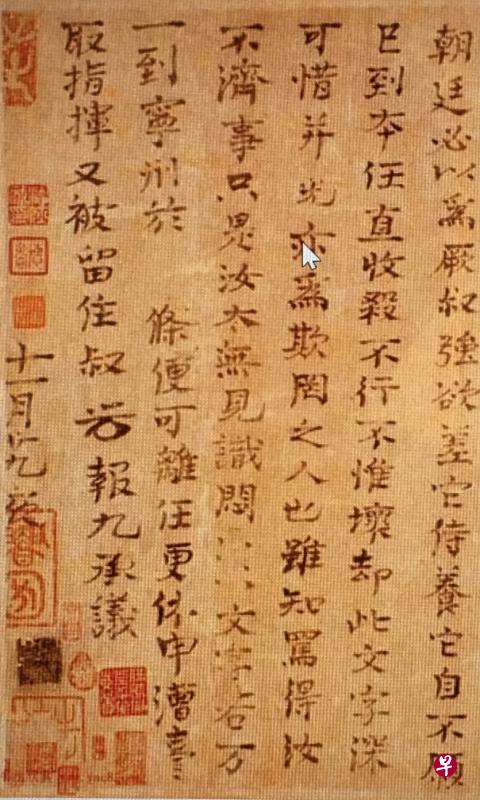 朝廷必以為厥叔強欲差它侍養它自不願
已到本任直收殺不行不惟壞却此文字深
可惜并光亦為欺罔之人也雖知罵得汝
不濟事只是汝太無見識悶〻〻文字若万
一到寧州於　條便可離任更休申漕臺
取指揮又被留住叔　光　報九承議
十一月十九日
早